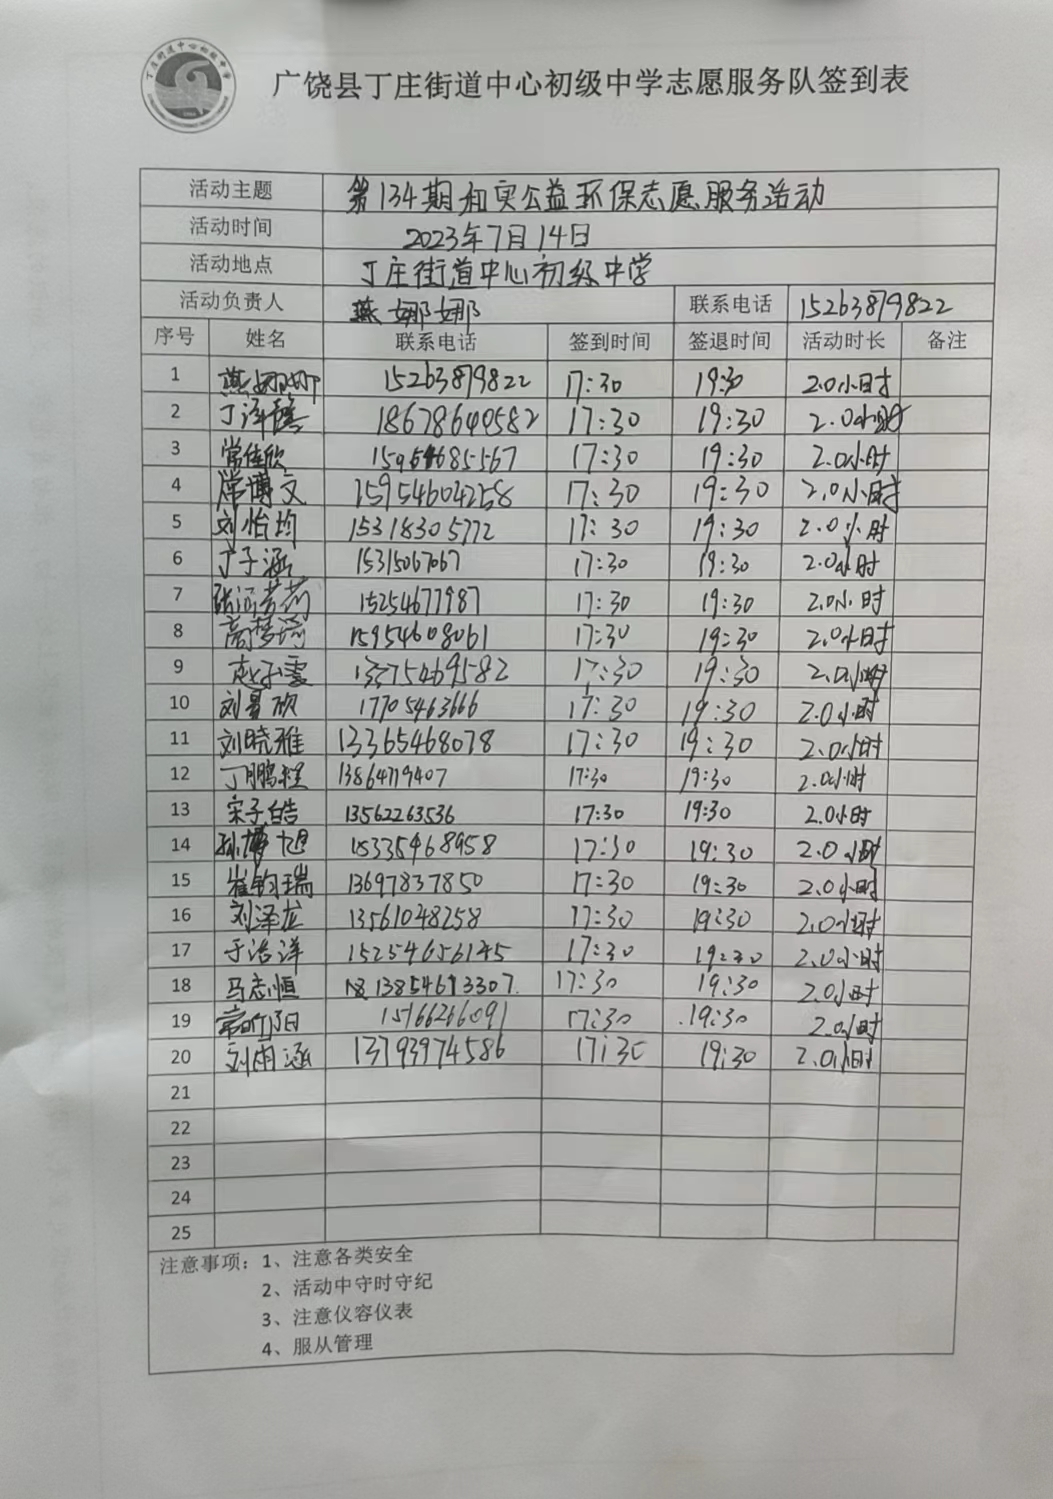 丁庄街道中心初级中学
广饶县丁庄街道中心初级中学志愿服务队签到表
活动主题 第134期和奕公益环保志愿服务活动
活动时间 2023年7月14日
活动地点 丁庄街道中心初级中学
活动负责人 燕娜娜 联系电话 15263879822
序号 姓名 联系电话 签到时间 签退时间 活动时长 备注
1 燕娜娜 15263879822 17:30 19:30 2.0小时
2 丁泽 18678640582 17:30 19:30 2.0小时
3 常佳欣 15954685567 17:30 19:30 2.0小时
4 常博文 15954604258 17:30 19:30 2.0小时
5 刘怡均 15318305772 17:30 19:30 2.0小时
6 丁子涵 15315067067 17:30 19:30 2.0小时
7 张 15254677987 17:30 19:30 2.0小时
8 高梦 15954608061 17:30 19:30 2.0小时
9 赵子雯 13375469582 17:30 19:30 2.0小时
10 刘景欣 17705463666 17:30 19:30 2.0小时
11 刘晓雅 13365468078 17:30 19:30 2.0小时
12 丁鹏程 1386479407 17:30 19:30 2.0小时
13 宋子皓 13562263536 17:30 19:30 2.0小时
14 孙博旭 15335468958 17:30 19:30 2.0小时
15 崔钧瑞 13697837850 17:30 19:30 2.0小时
16 刘泽龙 13561048258 17:30 19:30 2.0小时
17 于浩洋 15254656145 17:30 19:30 2.0小时
18 马志恒 13854613307 17:30 19:30 2.0小时
19 常 15166266091 17:30 19:30 2.0小时
20 刘雨涵 13793974586 17:30 19:30 2.0小时
21
22
23
24
25
注意事项：1、注意各类安全
2、活动中守时守纪
3、注意仪容仪表
4、服从管理